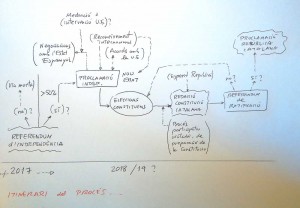 MEDIACIÓ +
(INTERVENCIÓ U.E.) ?
(Negociacions
amb l'Estat
Espanyol)
(Reconeixement
internacional)
(Acords amb
la U.E)
PROCLAMACIÓ
INDEP.
NOU
ESTAT
(Via morta)
(no) ?
(sí) ?
>50%
REFERÈNDUM
D'INDEPENDÈNCIA
ELECCIONS
CONSTITUENTS
(Esmenes República)
REDACCIÓ
CONSTITUCIÓ
CATALANA
Procés
participatiu
ciutadà, de
propostes de
la Constitució
no ?
sí ?
REFERÈNDUM
DE
RATIFICACIÓ
PROCLAMACIÓ
REPÚBLICA
CATALANA
2017
2018 / 19 ?
ITINERARI del PROCÉS....